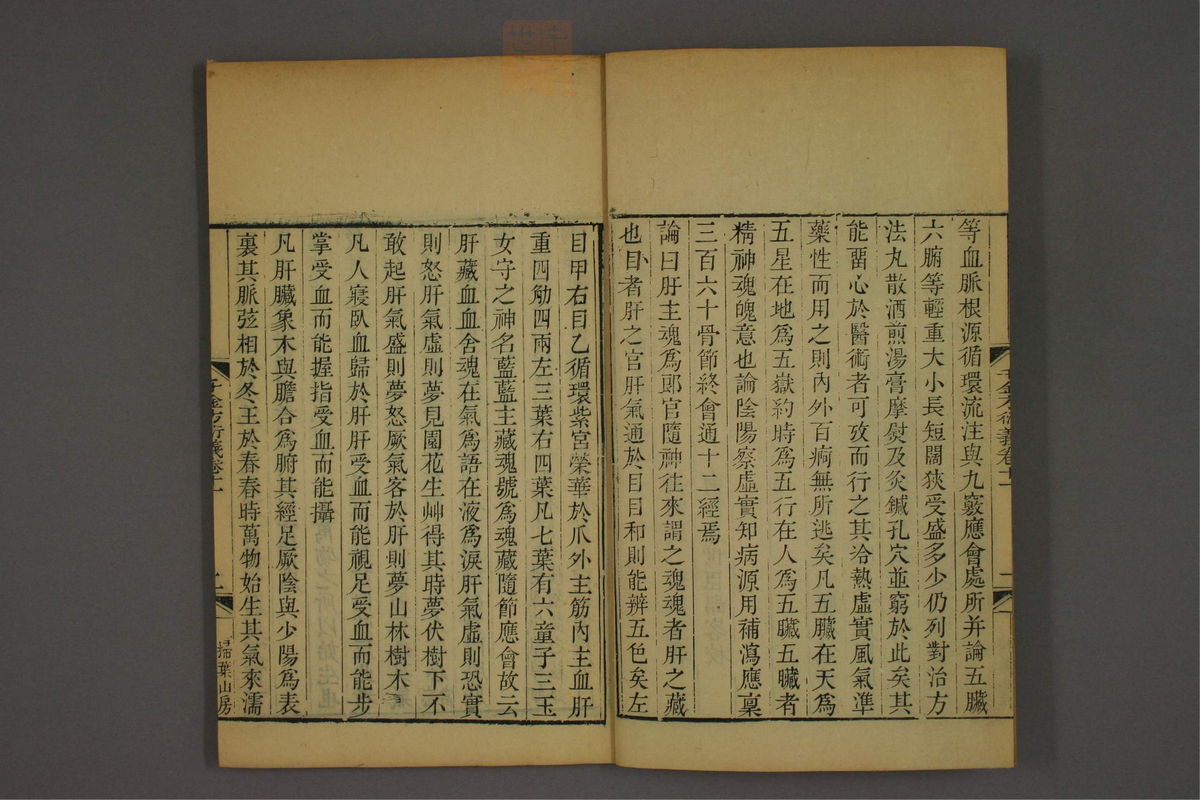 等血脈根源循環流注與九竅應會處所并論五臟
六腑等輕重大小長短闊狹受盛多少仍列對治方
法丸散酒煎湯膏摩熨及灸鍼孔穴並窮於此矣其
能畱心於醫術者可攷而行之其冷熱虛實風氣準
藥性而用之則內外百痾無所逃矣凡五臟在天爲
五星在地爲五嶽約時爲五行在人爲五臟五臟者
精神魂魄意也論陰陽察虛實知病源用補瀉應稟
三百六十骨節終會通十二經焉
論曰肝主魂爲郎官隨神往來謂之魂魂者肝之藏
也目者肝之官肝氣通於目目和則能辨五色矣左
目甲右目乙循環紫宮榮華於爪外主筋內主血肝
重四觔四兩左三葉右四葉凡七葉有六童子三玉
女守之神名藍藍主藏魂號爲魂藏隨節應會故云
肝藏血血舍魂在氣爲語在液爲淚肝氣虛則恐實
則怒肝氣虛則夢見園花生艸得其時夢伏樹下不
敢起肝氣盛則夢怒厥氣客於肝則夢山林樹木
凡人寢臥血歸於肝肝受血而能視足受血而能步
掌受血而能握指受血而能攝
凡肝臟象木與膽合爲腑其經足厥陰與少陽爲表
裏其脈弦相於冬王於春春時萬物始生其氣來濡
千金方衍義卷十一
二
掃葉山房